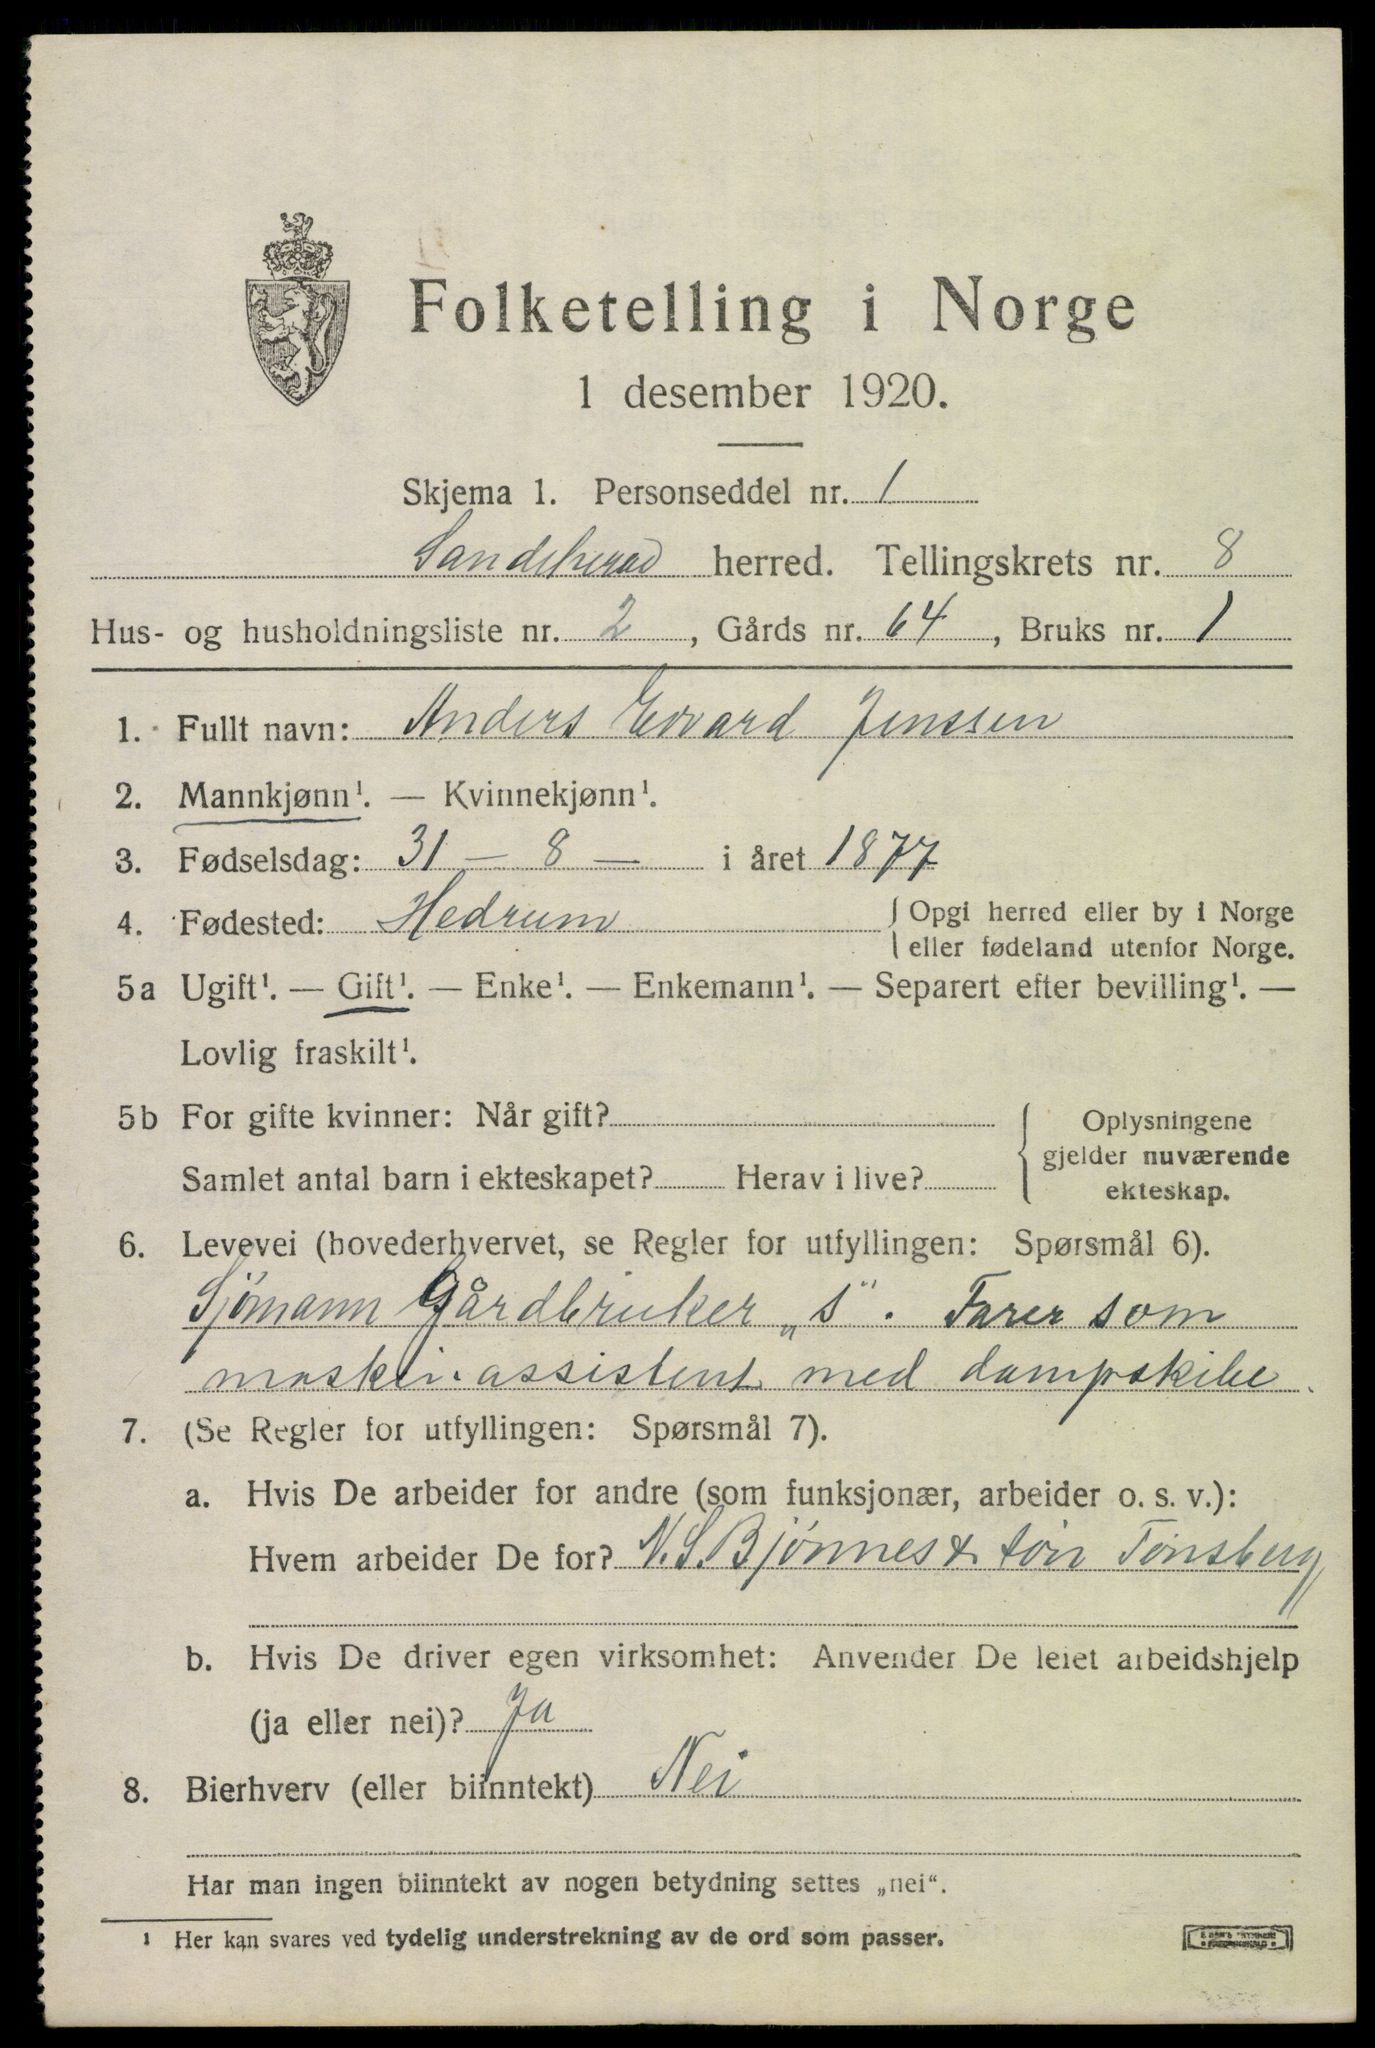 Folketelling i Norge
1 desember 1920.
Skjema 1. Personseddel nr. 1
Sandeherad herred. Tellingskrets nr. 8
Hus- og husholdningsliste nr. 2, Gårds nr. 64, Bruks nr. 1
1. Fullt navn: Anders Edvard Jenssen
2. Mannkjønn¹. — Kvinnekjønn¹.
3. Fødselsdag: 31 — 8 — i året 1877
4. Fødested: Hedrum { Opgi herred eller by i Norge
eller fødeland utenfor Norge.
5a Ugift¹. — Gift¹. — Enke¹. — Enkemann¹. — Separert efter bevilling¹. —
Lovlig fraskilt¹.
5b For gifte kvinner: Når gift? { Oplysningene
gjelder nuværende
Samlet antal barn i ekteskapet? Herav i live? ekteskap.
6. Levevei (hovederhvervet, se Regler for utfyllingen: Spørsmål 6).
Sjømann Gårdbruker „s". Farer som
maskin.assistent med dampskibe
7. (Se Regler for utfyllingen: Spørsmål 7).
a. Hvis De arbeider for andre (som funksjonær, arbeider o. s. v.):
Hvem arbeider De for? N.S. Bjönnes & Sön Tönsberg
b. Hvis De driver egen virksomhet: Anvender De leiet arbeidshjelp
(ja eller nei)? Ja
8. Bierhverv (eller biinntekt) Nei
Har man ingen biinntekt av nogen betydning settes „nei".
¹ Her kan svares ved tydelig understrekning av de ord som passer.